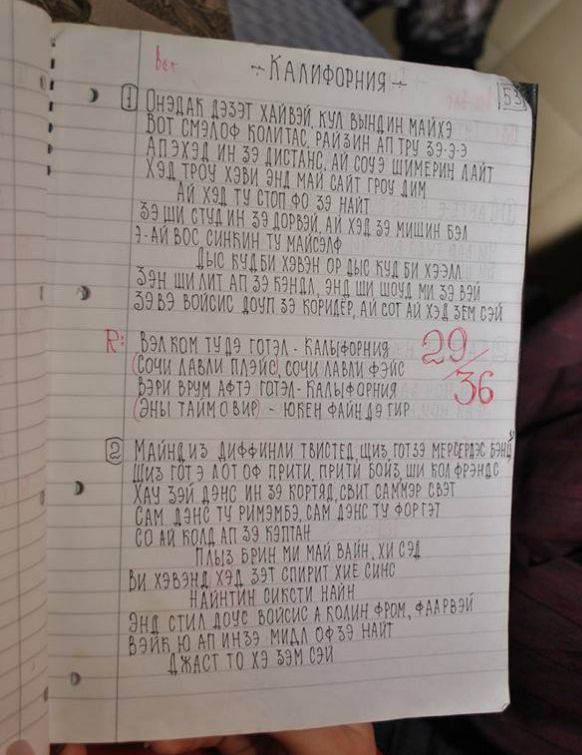 ÷ КАЛИФОРНИЯ ÷
53
1 ОНЭДАК ДЭЗЭТ ХАЙВЭЙ, КУЛ ВЫНДИН МАЙХЭ
ВОТ СМЭЛОФ КОЛИТАС, РАЙЗИН АП ТРУ ЗЭ-Э-Э
АПЭХЭД ИН ЗЭ ДИСТАНС, АЙ СОУЭ ШИМЕРИН ЛАЙТ
ХЭД ГРОУ ХЭВИ ЭНД МАЙ САЙТ ГРОУ ДИМ
АЙ ХЭД ТУ СТОП ФО ЗЭ НАЙТ
ЗЭ ШИ СТУД ИН ЗЭ ДОРВЭЙ, АЙ ХЭД ЗЭ МИШИН БЭЛ
Э-АЙ ВОС СИНКИН ТУ МАЙСЭЛФ
ДЫС КУД БИ ХЭВЭН ОР ДЫС КУД БИ ХЭЭЛЛ
ЗЭН ШИ ЛИТ АП ЗЭ КЭНДЛ, ЭНД ШИ ШОУД МИ ЗЭ ВЭЙ
ЗЭ ВЭ ВОЙСИС ДОУП ЗЭ КОРИДЁР, АЙ СОТ АЙ ХЭД ЗЕМ СЭЙ
R: ВЭЛКОМ ТУ ДЭ ГОТЭЛ - КАЛЫФОРНИЯ
(СОЧИ ЛАВЛИ ПЛЭЙС), СОЧИ ЛАВЛИ ФЭЙС
ВЭРИ ВРУМ АФТЭ ГОТЭЛ - КАЛЫФОРНИЯ
(ЭНЫ ТАЙМ О ВИР) - ЮКЕН ФАЙН ДЭ ГИР
29/36
2 МАЙНД ИЗ ДИФФИНЛИ ТВИСТЕД, ЩИЗ ГОТ ЗЭ МЕРСЕРДЭС БЭНЦ
ШИЗ ГОТ Э ЛОТ ОФ ПРИТИ, ПРИТИ БОЙЗ, ШИ КОЛ ФРЭНДС
ХАУ ЗЭЙ ДЭНС ИН ЗЭ КОРТЯД, СВИТ САММЭР СВЭТ
САМ ДЭНС ТУ РИМЭМБЭ, САМ ДЭНС ТУ ФОРГЭТ
СО АЙ КОЛД АП ЗЭ КЭПТАН
ПЛЫЗ БРИН МИ МАЙ ВАЙН, ХИ СЭД
ВИ ХЭВЭНД ХЭД ЗЭТ СПИРИТ ХИЕ СИНС
НАЙНТИН СИКСТИ НАЙН
ЭНД СТИЛ ДОУС ВОЙСИС А КОЛИН ФРОМ, ФААРВЭЙ
ВЭЙК Ю АП ИН ЗЭ МИДЛ ОФ ЗЭ НАЙТ
ДЖАСТ ТО ХЭ ЗЭМ СЭЙ